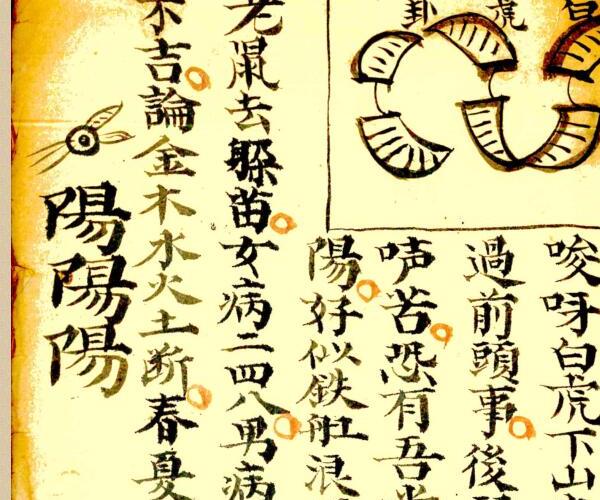 卦
虎
唆呀白虎下山
過前頭事後
声苦恐有吾
陽好似鉄船浪
老鼠去躱苗女病二四八男病
不吉論金木水火土断春夏
陽陽陽